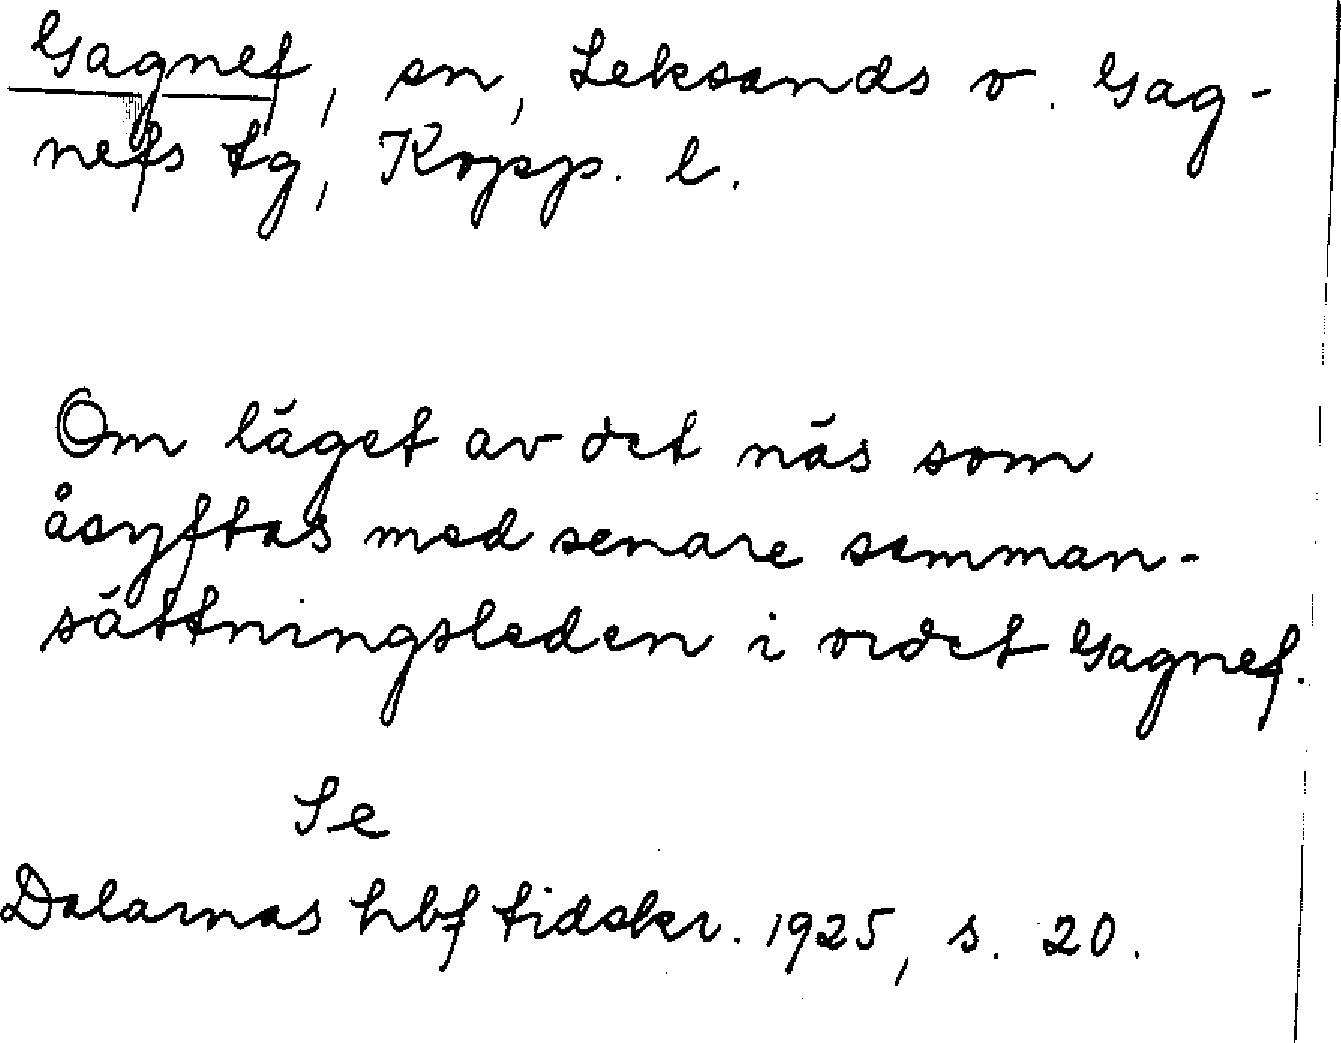 Gagnef, sn, Leksands o. Gag-
nefs tg, Kopp. l.
Om läget av det näs som
åsyftas med senare samman-
sättningsleden i ordet Gagnef.
Se
Dalarnas hbf tidskr. 1925, s. 20.